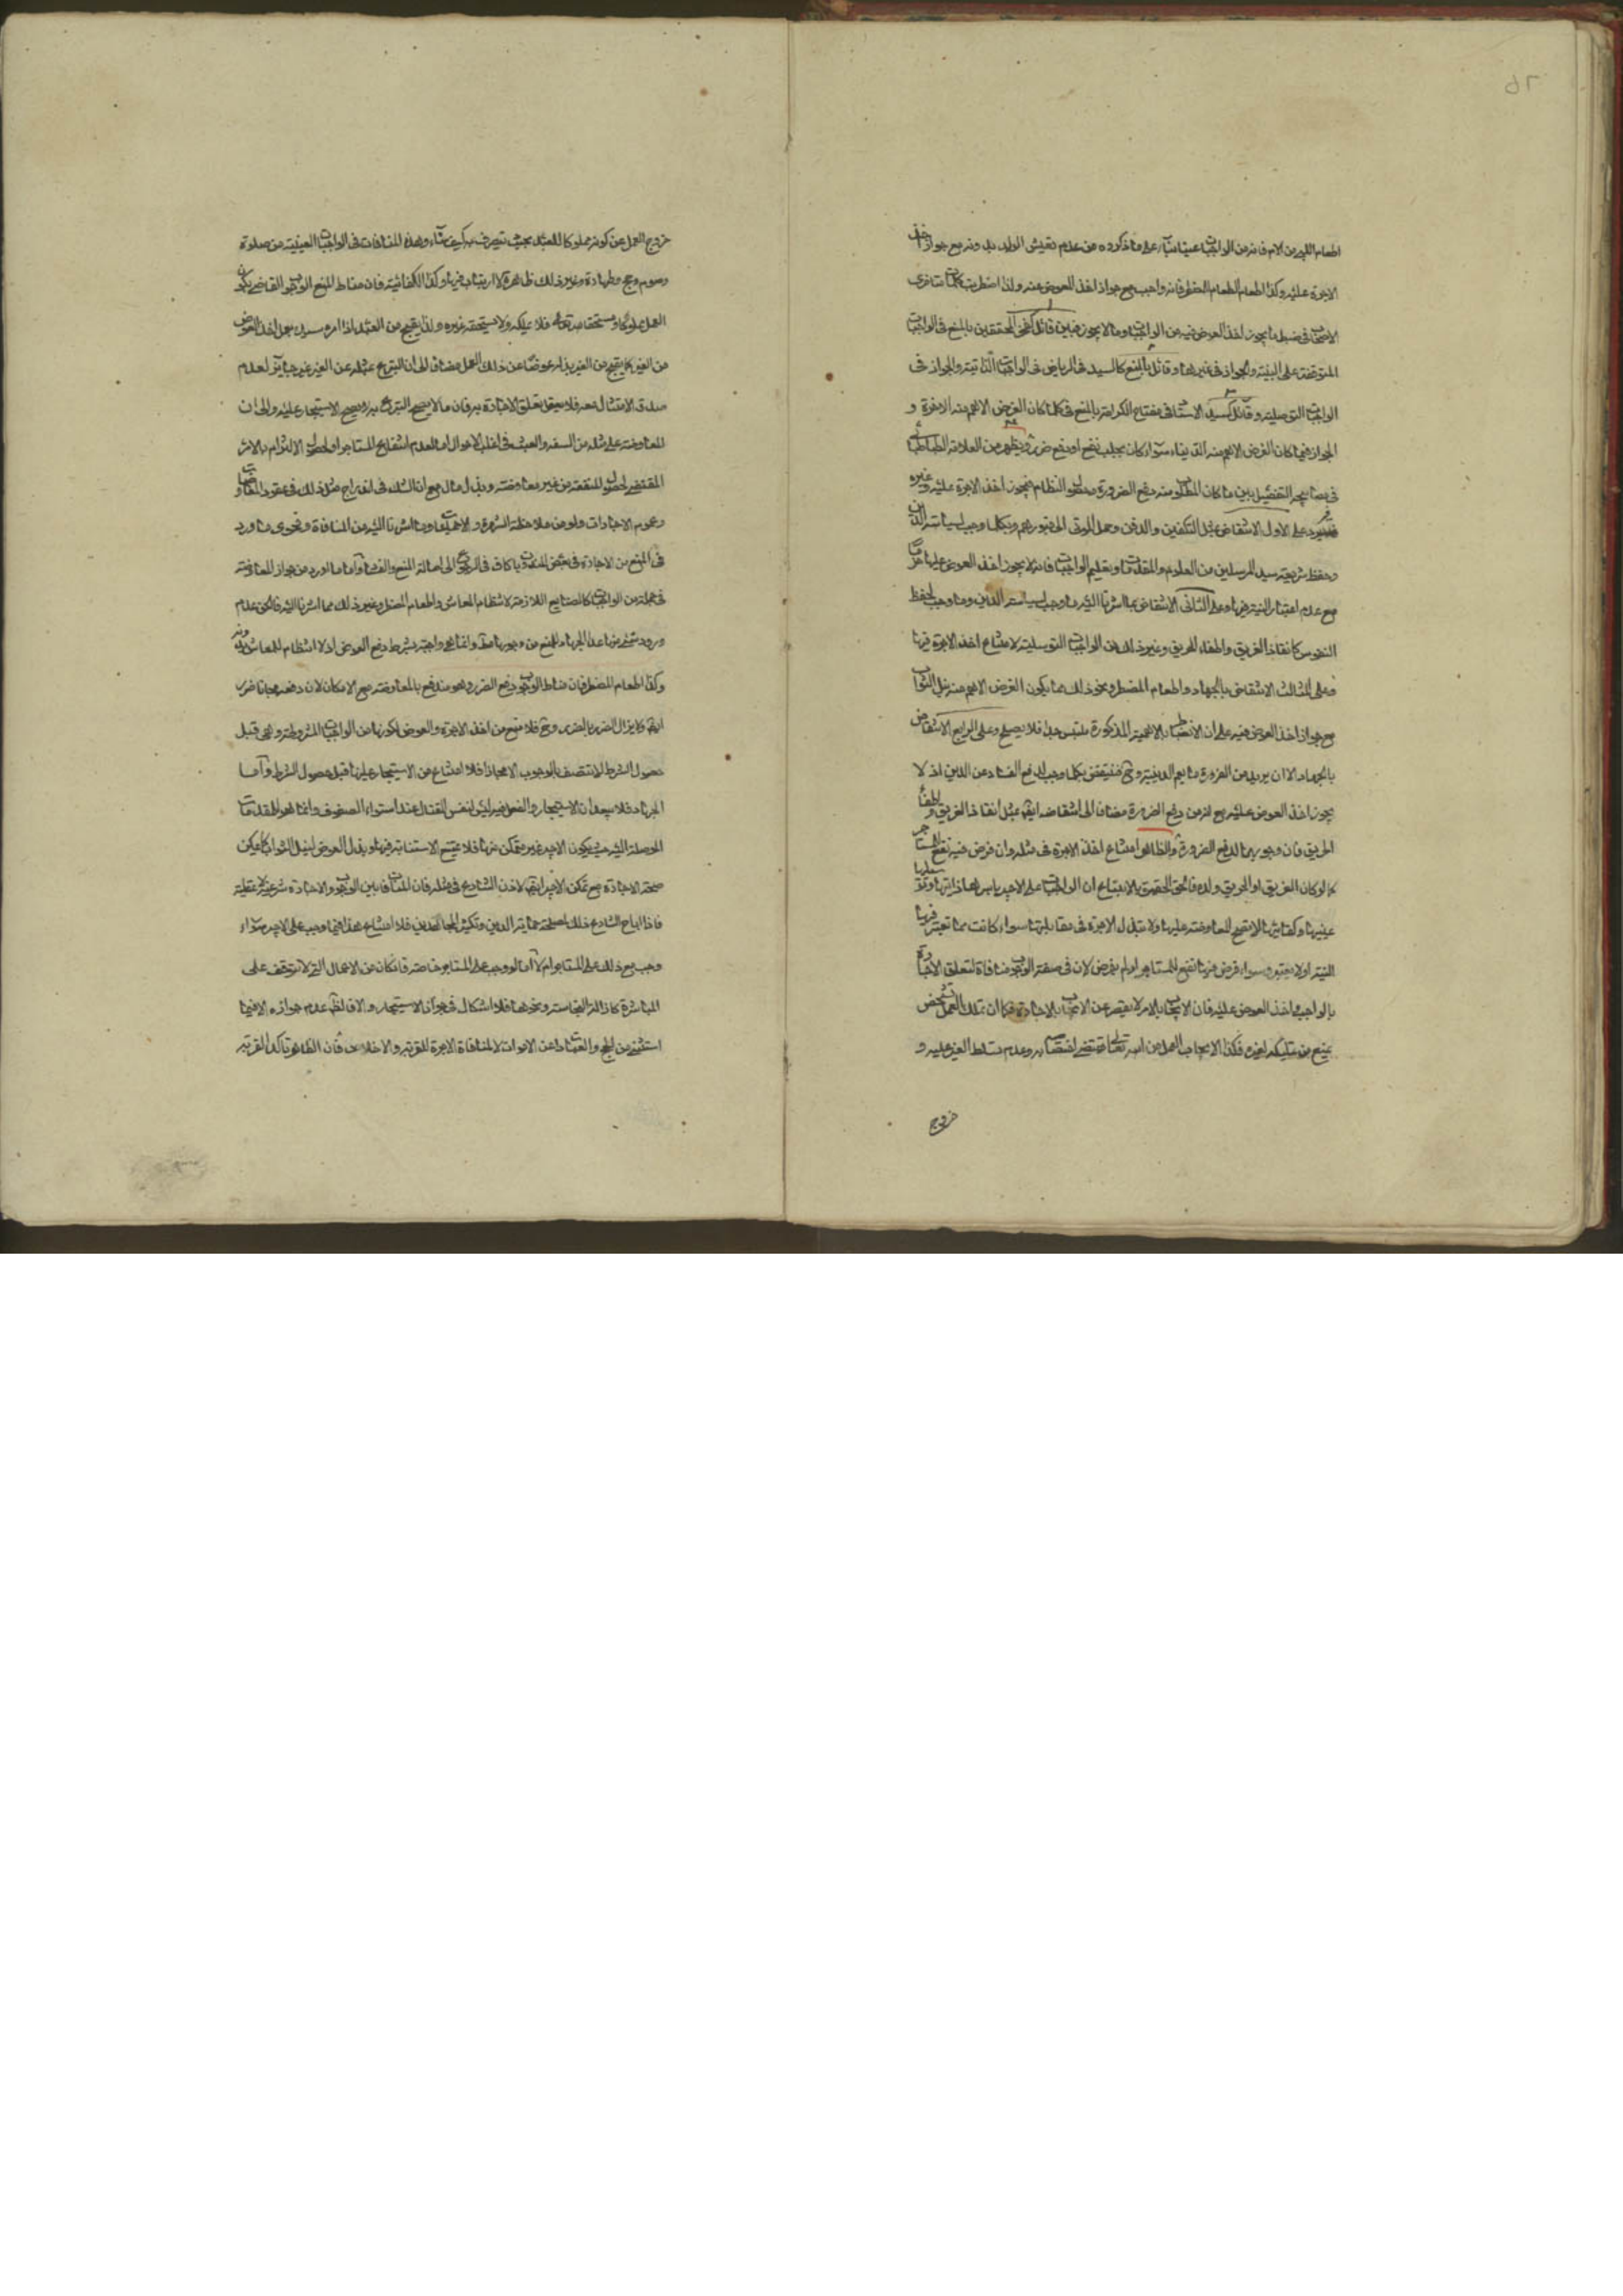 اطعام اللبن من الام فانه من الواجبات عينا بناء على ما ذكروه من عدم تعيش الولد بدونه مع جواز اخذ
الاجرة عليه وكذا اطعام الطعام المضطر فانه واجب مع جواز اخذ العوض عنه ولذا اضطربت كلمات متاخرى
الاصحاب فى ضبط ما يجوز اخذ العوض فيه من الواجبات وما لا يجوز فبين قائل كفخر المحققين بالمنع فى الواجبات
المتوقفة على النية والجواز فى غيرها وقائل بالمنع كالسيد فى الرياض فى الواجبات الذاتية والجواز فى
الواجبات التوصلية وقائل كسيد الاستاد فى مفتاح الكرامة بالمنع فى كلما كان الغرض الاهم منه الاخرة و
الجواز فيما كان الغرض الاهم منه الدنيا سواء كان بجلب نفع او دفع ضرر ويظهر من العلامة الطباطبائى
فى مصابيحه التفصيل بين ما كان المطلوب منه دفع الضرورة وحصول النظام فيجوز اخذ الاجرة عليه وغيره
فيرد على الاول الانتقاض بمثل التكفين والدفن وحمل الموتى الى قبورهم وبكلما وجب لسياسة الدين
وحفظ شريعة سيد المرسلين من العلوم والمقدمات وتعليم الواجبات فانه لا يجوز اخذ العوض عليها
مع عدم اعتبار النية فيها وعلى الثانى الانتقاض بما اشرنا اليه مما وجب لسياسة الدين وما وجب لحفظ
النفوس كانقاذ الغريق واطفاء الحريق وغير ذلك من الواجبات التوصلية لامتناع اخذ الاجرة فيها
وعلى الثالث الانتقاض بالجهاد واطعام المضطر ونحو ذلك مما يكون الغرض الاهم منه نيل الثواب
مع جواز اخذ العوض فيه على ان الانضباط بالاهمية المذكورة ملتبس جدا فلا يصلح وعلى الرابع الانتقاض
بالجهاد الا ان يريد من الضرورة ما يعم الدينية وح فينتقض بكلما وجب لدفع الفساد عن الدين اذ لا
يجوز اخذ العوض عليه مع انه من دفع الضرورة مضافا الى انتقاضه ايضا بمثل انقاذ الغريق واطفاء
الحريق فان وجوبهما لدفع الضرورة والظاهر امتناع اخذ الاجرة فى مثله وان فرض فيه نفع للمستاجر
كما لو كان الغريق او الحريق ولده فالحق الحقيق بالاتباع ان الواجبات على الاجير باسرها
عينيها وكفائيها لا يصح المعاوضة عليها ولا بتذل الاجرة فى مقابلتها سواء كانت مما تعتبر فيها
النية او لا يعتبر وسواء فرض فيها نفع للمستاجر او لم يفرض لان فى صفة الوجوب منافاة لتعلق الاجارة
بالواجب واخذ العوض عليه فان الايجاب بالامر لا يقصر عن الايجاب بالاجارة فكما ان تملك العمل لشخص
يمنع من تمليكه لغيره فكذا الايجاب العمل من الله تعالى يقتضى اختصاصه به وعدم تسلط الغير عليه و
خروج
خروج العمل عن كونه مملوكا للعبد بحيث تصرف به كيف شاء وهذه المنافات فى الواجبات العينية من صلوة
وصوم وحج وطهارة وغير ذلك ظاهرة لا ارتياب فيها وكذا الكفائية فان مناط المنع الوجوب القاضى بكون
العمل مملوكا ومستحقا لله تعالى فلا يملكه ولا يستحقه غيره ولذا يقبح من العبد اذا امره سيده بعمل اخذ العوض
من الغير كما يقبح من الغير بذله عوضا عن ذلك العمل مضافا الى ان التبرع بمثله عن الغير غير جائز لعدم
صدق الامتثال معه فلا يعقل تعلق الاجارة به فان ما لا يصح التبرع به لا يصح الاستيجار عليه والى ان
المعاوضة على مثله من السفه والعبث فى اغلب الاحوال اما لعدم انتفاع المستاجر او لحصول الالتزام بالامر
المقتضى لحصول المنفعة من غير معاوضة وبذل مال مع ان الشك فى اندراج مثل ذلك فى عقود المعاوضات
وعموم الاجارات ولو من ملاحظة الشهرة والاجماعات وما اشرنا اليه من المنافاة وفحوى ما ورد
فى المنع من الاجارة فى بعض المقامات كاف فى الرجوع الى اصالة المنع والفساد واما ما ورد من جواز المعاوضة
فى جملة من الواجبات كالصنايع اللازمة لانتظام المعاش واطعام المضطر وغير ذلك مما اشرنا اليه فالحق عدم
ورود شىء منها عدا الجهاد لمنع من وجوبها مطلقا وانما هى واجبة بشرط دفع العوض اذ لا انتظام للمعاش بدونه
وكذا اطعام المضطر فان مناط الوجوب دفع الضرر وهو مندفع بالمعاوضة مع الامكان لان دفعه مجانا ضرر
ايضا ولا يزال الضرر بالضرر وح فلا منع من اخذ الاجرة والعوض لكونها من الواجبات المشروطة وهى قبل
حصول الشرط لا تتصف بالوجوب الا مجازا فلا امتناع من الاستيجار عليها قبل حصول الشرط واما
الجهاد فلا يبعد ان الاستيجار والعوض فيه ليس لنفس القتال عند استواء الصفوف وانما هو للمقدمات
الموصلة اليه حيث يكون الاجير غير متمكن منها فلا يمتنع الاستنابة فيها وبذل العوض لنيل الثواب كما يمكن
صحة الاجارة مع تمكن الاجير ايضا لاذن الشارع فى مثله فان المنافات بين الوجوب والاجارة شرعية لا عقلية
فاذا اباح الشارع ذلك لمصلحة حماية الدين وتكثير المجاهدين فلا امتناع هذا فيما وجب على الاجير سواء
وجب مع ذلك على المستاجر ام لا اما لو وجب على المستاجر خاصة فان كان من الاعمال التى لا تتوقف على
المباشرة كازالة النجاسة ونحوها فلا اشكال فى جواز الاستيجار والا فالظاهر عدم جوازه الا فيما
استثنى من الحج والعبادات عن الاموات لا لمنافاة الاجرة للقربة والاخلاص فان الظاهر تاكد القربة